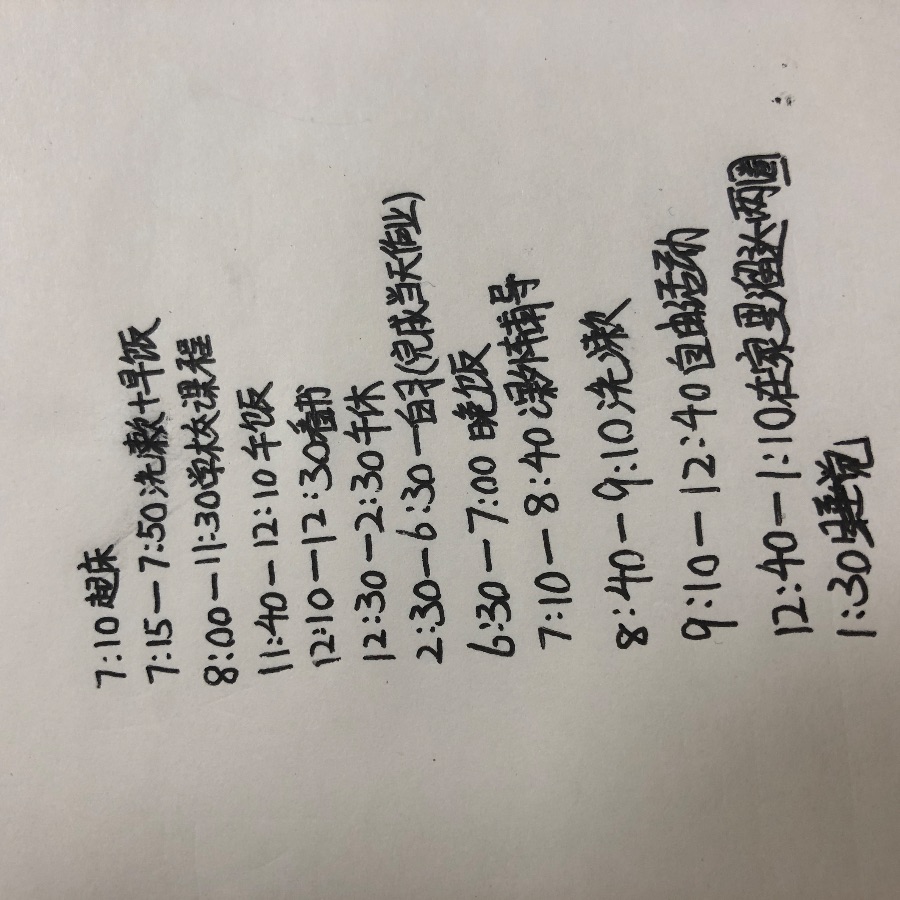 7:10 起床
7:15—7:50 洗漱+早饭
8:00—11:30 学校课程
11:40—12:10 午饭
12:10—12:30 看书
12:30—2:30 午休
2:30—6:30—自习(完成当天作业)
6:30—7:00 晚饭
7:10—8:40 课外辅导
8:40—9:10 洗漱
9:10—12:40 自由活动
12:40—1:10 在家里溜达两圈
1:30 睡觉